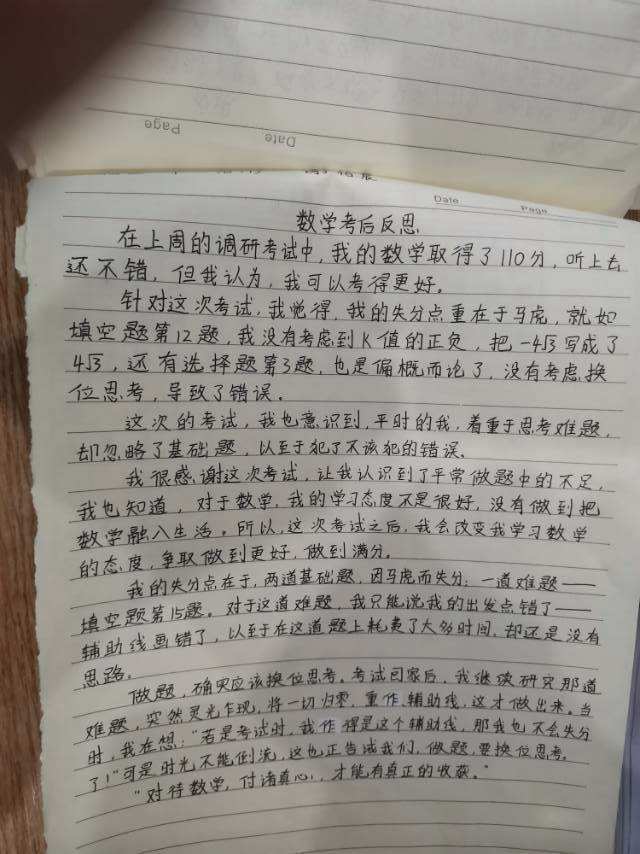 Page
Date
Date
Page
数学考后反思
在上周的调研考试中，我的数学取得了110分，听上去
还不错，但我认为，我可以考得更好。
针对这次考试，我觉得，我的失分点重在于马虎，就如
填空题第12题，我没有考虑到K值的正负，把-4√3写成了
4√3，还有选择题第3题，也是偏概而论了，没有考虑换
位思考，导致了错误。
这次的考试，我也意识到，平时的我，着重于思考难题，
却忽略了基础题，以至于犯了不该犯的错误。
我很感谢这次考试，让我认识到了平常做题中的不足，
我也知道，对于数学，我的学习态度不是很好，没有做到把
数学融入生活。所以，这次考试之后，我会改变我学习数学
的态度，争取做到更好，做到满分。
我的失分点在于，两道基础题，因马虎而失分；一道难题——
填空题第15题。对于这道难题，我只能说我的出发点错了——
辅助线画错了，以至于在这道题上耗费了大多时间，却还是没有
思路。
做题，确实应该换位思考。考试回家后，我继续研究那道
难题，突然灵光乍现，将一切归零，重作辅助线，这才做出来。当
时，我在想：“若是考试时，我作得是这个辅助线，那我也不会失分
了！”可是时光不能倒流，这也正告诫我们，做题，要换位思考。
“对待数学，付诸真心，才能有真正的收获。”